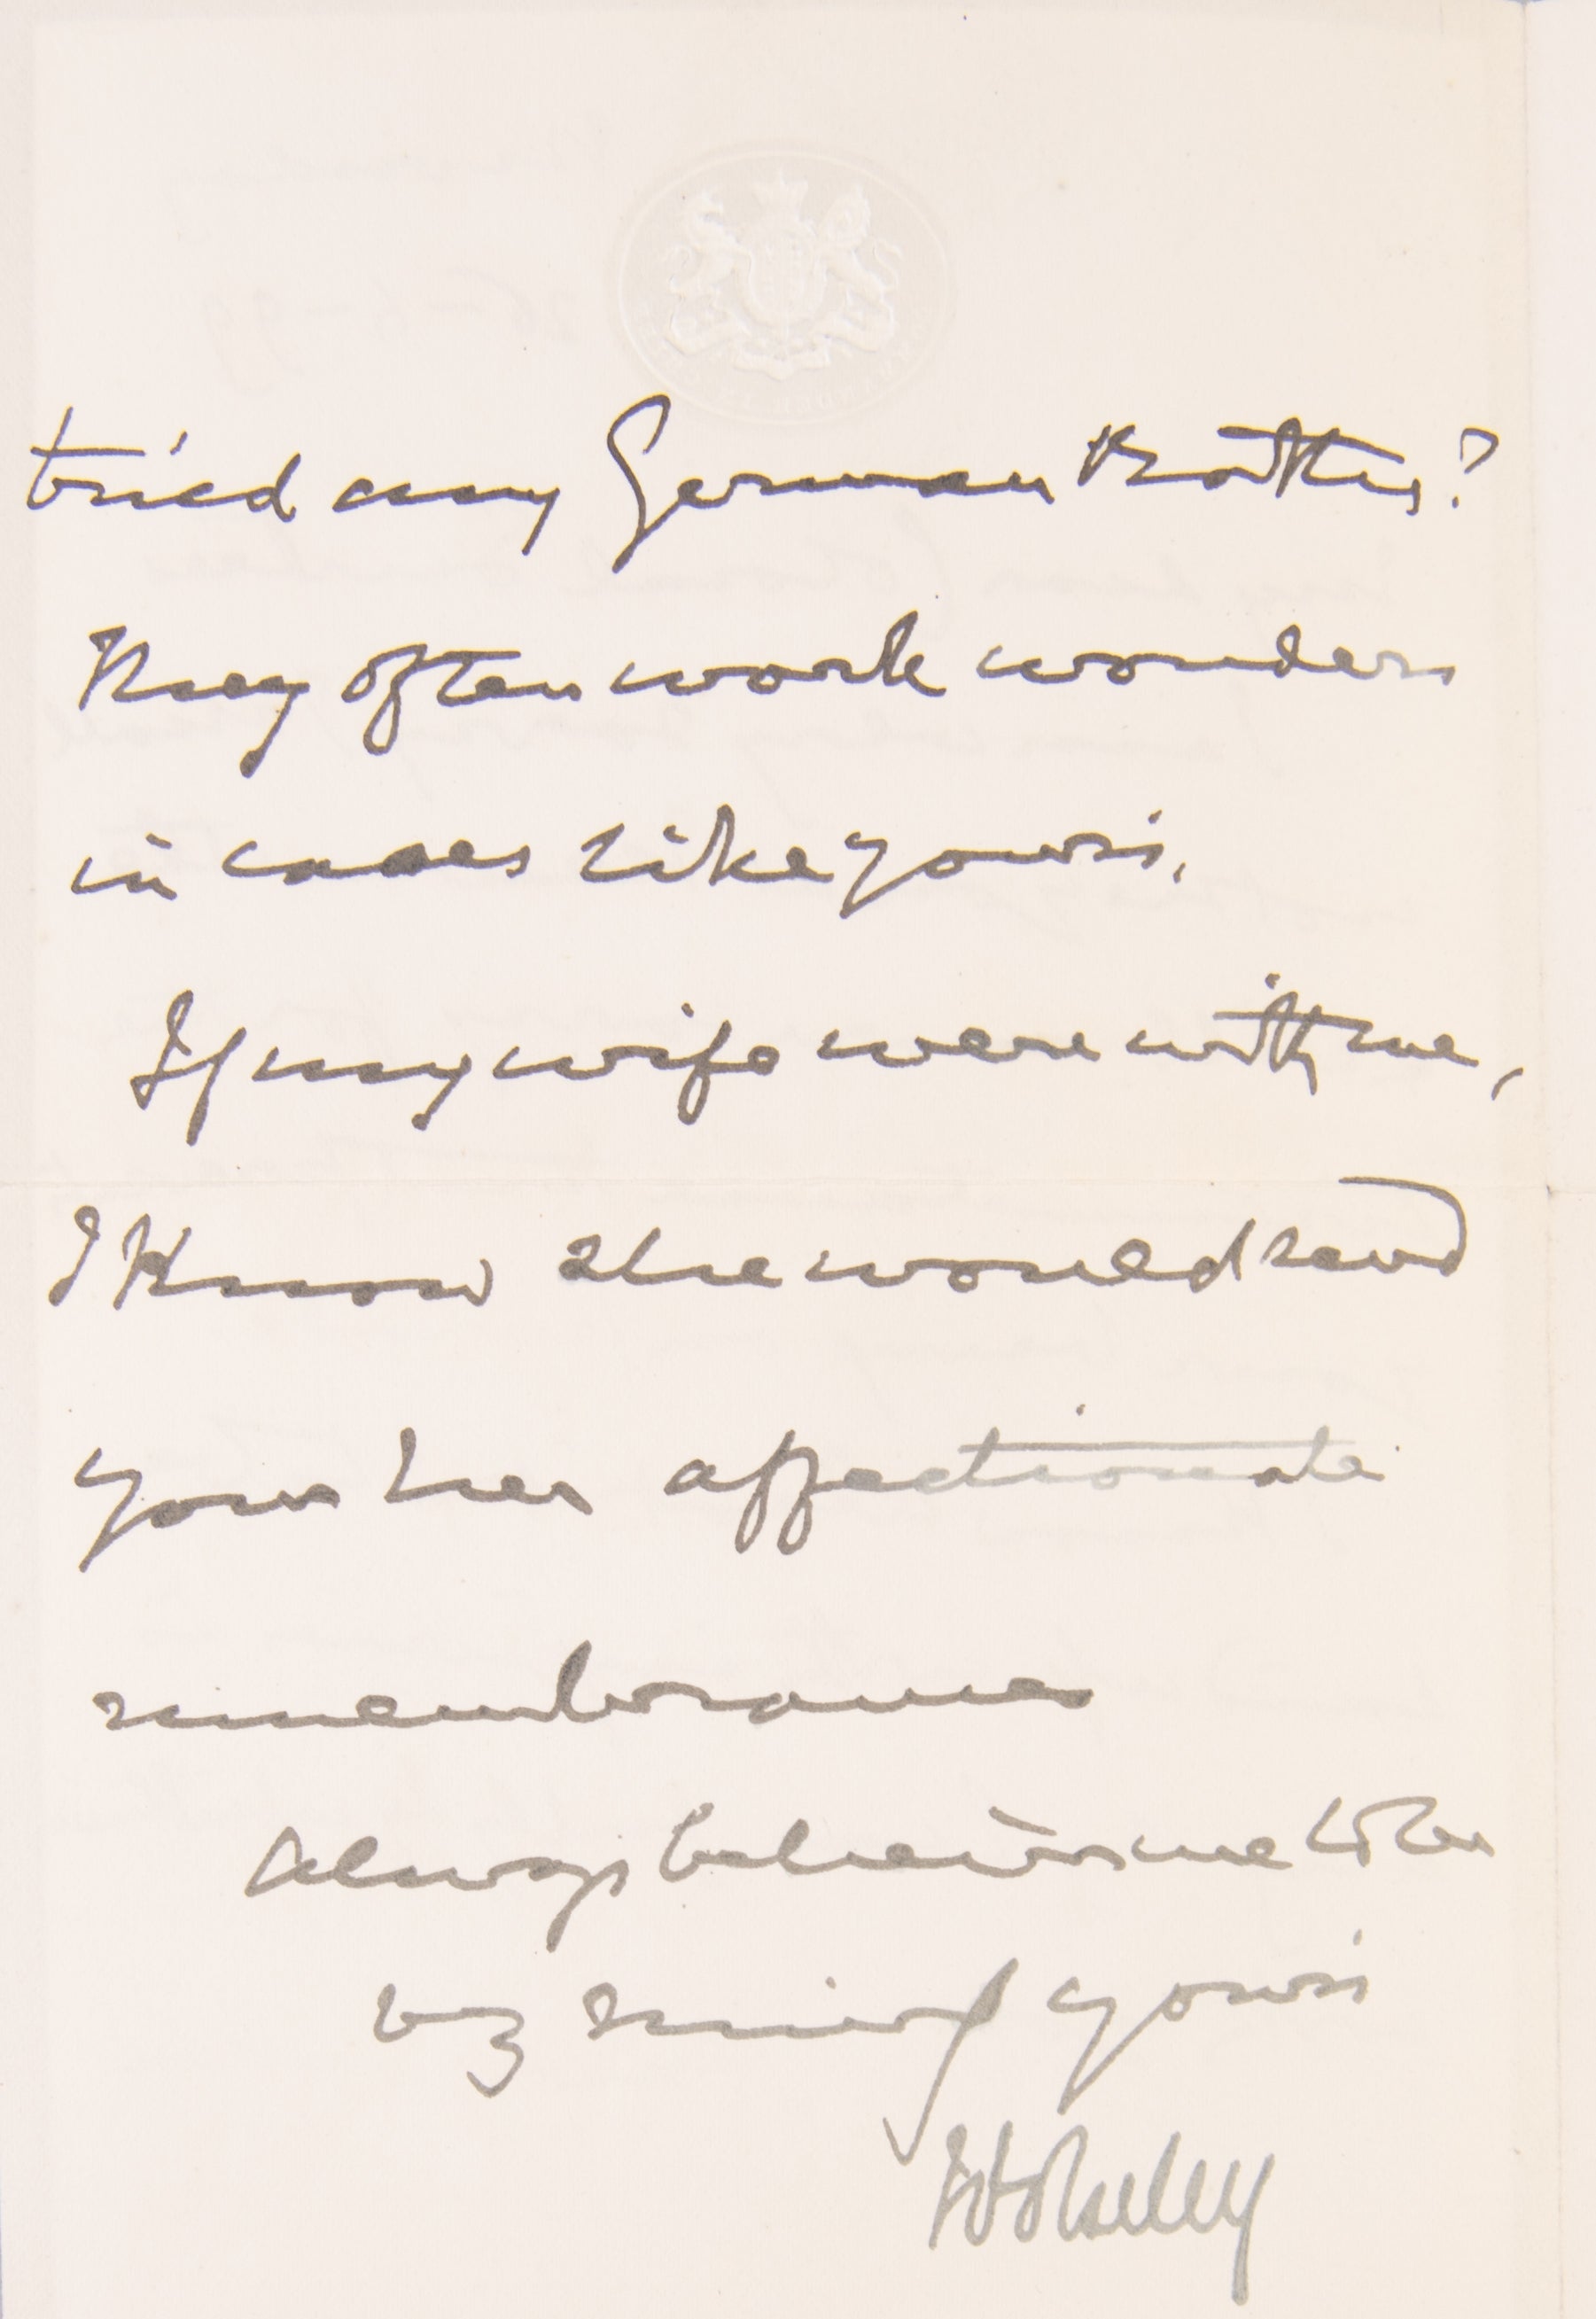 tried any German Baths?
They often work wonders
in cases like yours.
If my wife were with me,
I know she would send
you her affectionate
remembrances
Always believe me to be
vy sincy yours
Wolseley